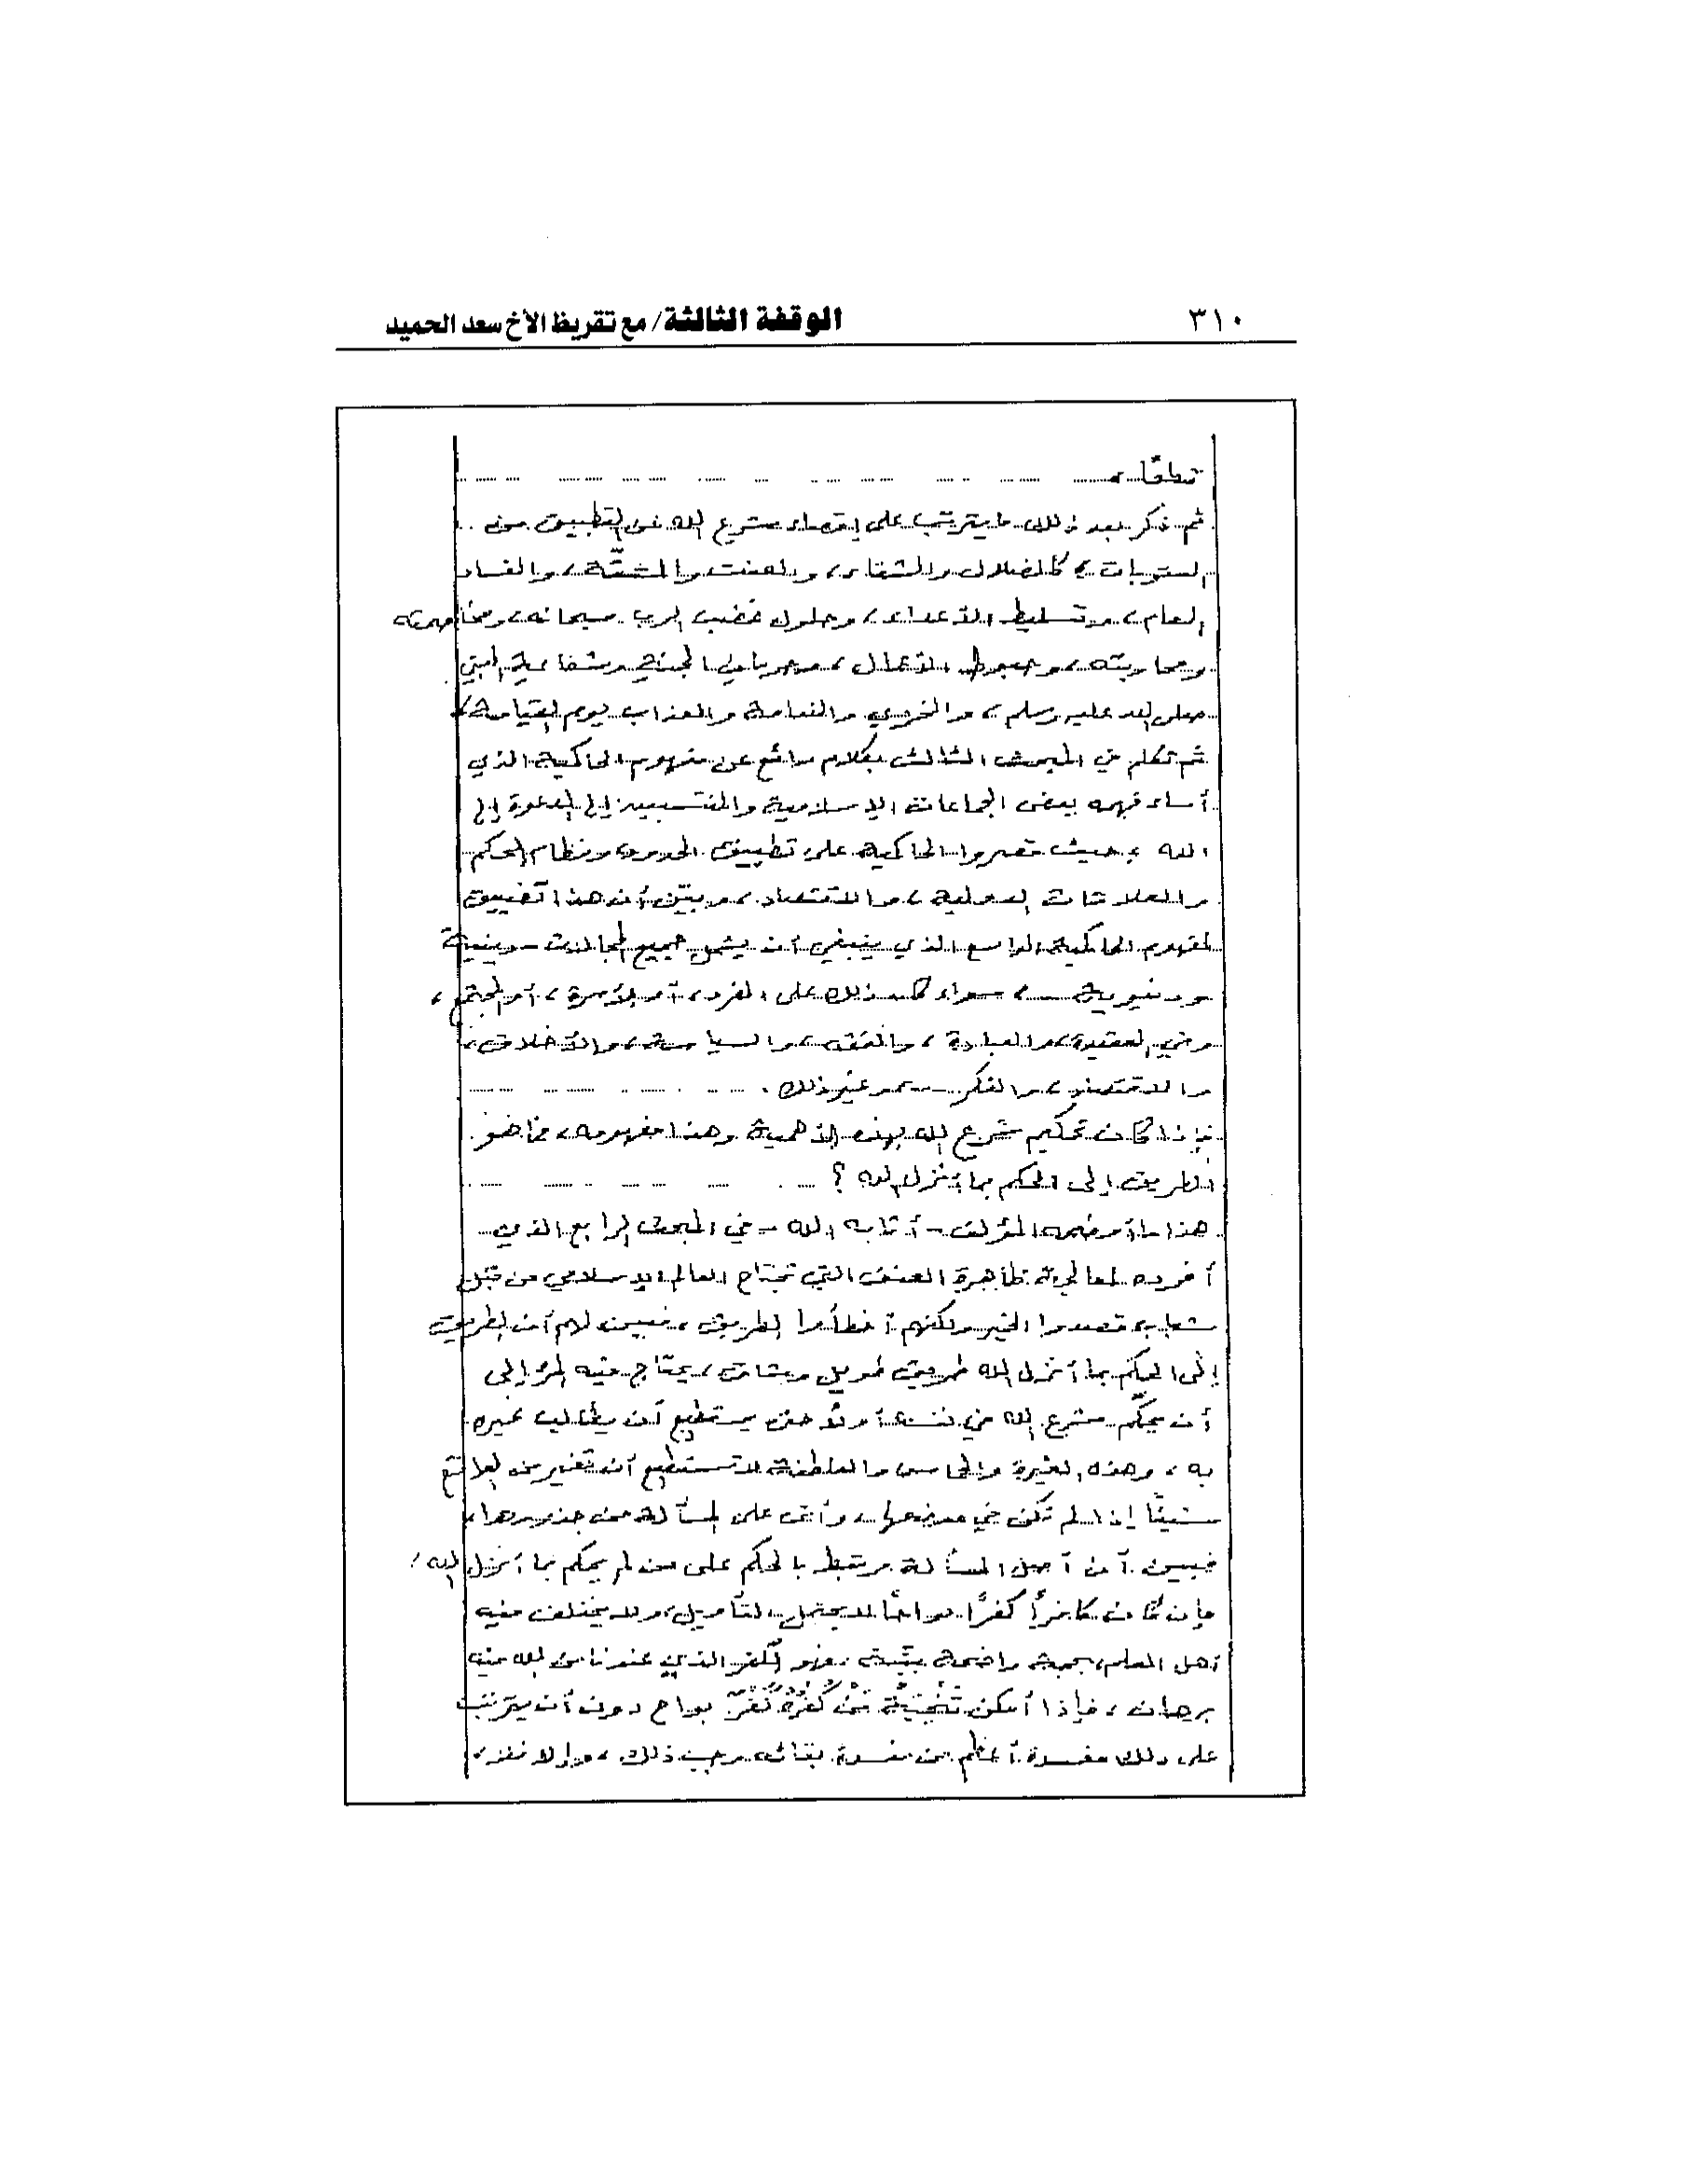 ٣١٠
الوقفة الثالثة/ مع تقريظ الأخ سعد الحميد
قطعًا.
ثم ذكر بعد ذلك ما يترتب على إقصاء شرع الله عن التطبيق من
العقوبات، كالضلال والشقاء، والعنت والمشقّة، والفساد
العام، وتسليط الأعداء، وحلول غضب الرب سبحانه، ومخاصمته
ومحاربته، وحبوط الأعمال، وحرمان الجنة وشفاعة النبي
صلى الله عليه وسلم، والخزي والندامة والعذاب يوم القيامة،
ثم تكلم في المبحث الثالث بكلام رائع عن مفهوم الحاكمية الذي
أساء فهمه بعض الجماعات الإسلامية والمنتسبين إلى الدعوة إلى
الله، حيث قصروا الحاكمية على تطبيق الحدود ونظام الحكم
والعلاقات الدولية، والاقتصاد، وبيّن أن هذا تضييق
لمفهوم الحاكمية الواسع الذي ينبغي أن يشمل جميع المجالات – دينية
ودنيوية –، سواء كان ذلك على الفرد، أو الأسرة، أو المجتمع،
وفي العقيدة، والعبادة، والفقه، والسياسة، والأخلاق،
والاقتصاد، والفكر – وغير ذلك.
فإذا كان تحكيم شرع الله بهذه الأهمية وهذا مفهومه، فما هو
الطريق إلى الحكم بما أنزل الله؟
هذا ما أوضحه المؤلف – أثابه الله – في المبحث الرابع الذي
أفرده لمعالجة ظاهرة العنف التي تجتاح العالم الإسلامي من قبل
شباب قصدوا الخير ولكنهم أخطأوا الطريق، فبين لهم أن الطريق
إلى الحكم بما أنزل الله طريق طويل وشاق، يحتاج فيه المرء إلى
أن يحكّم شرع الله في نفسه أولاً حتى يستطيع أن يطالب غيره
به، وهذه الغيرة والحماس والعاطفة لا تستطيع أن تغير من الواقع
شيئًا إذا لم تكن في موضعها، وأتى على المسألة من جذورها،
فبين أن أصل المسألة مرتبط بالحكم على من لم يحكم بما أنزل الله،
فإن كان كافراً كفرًا بواحًا لا يحتمل التأويل، ولا يختلف فيه
أهل العلم، بحجة واضحة بيّنة، فهو الكفر الذي عندنا من الله فيه
برهان، فإذا أمكن تَنْحِيَةُ مَنْ كُفْرُهُ كُفْرٌ بواح دون أن يترتب
على ذلك مفسدة أعظم من مفسدة بقائه وجب ذلك، وإلا فلا،